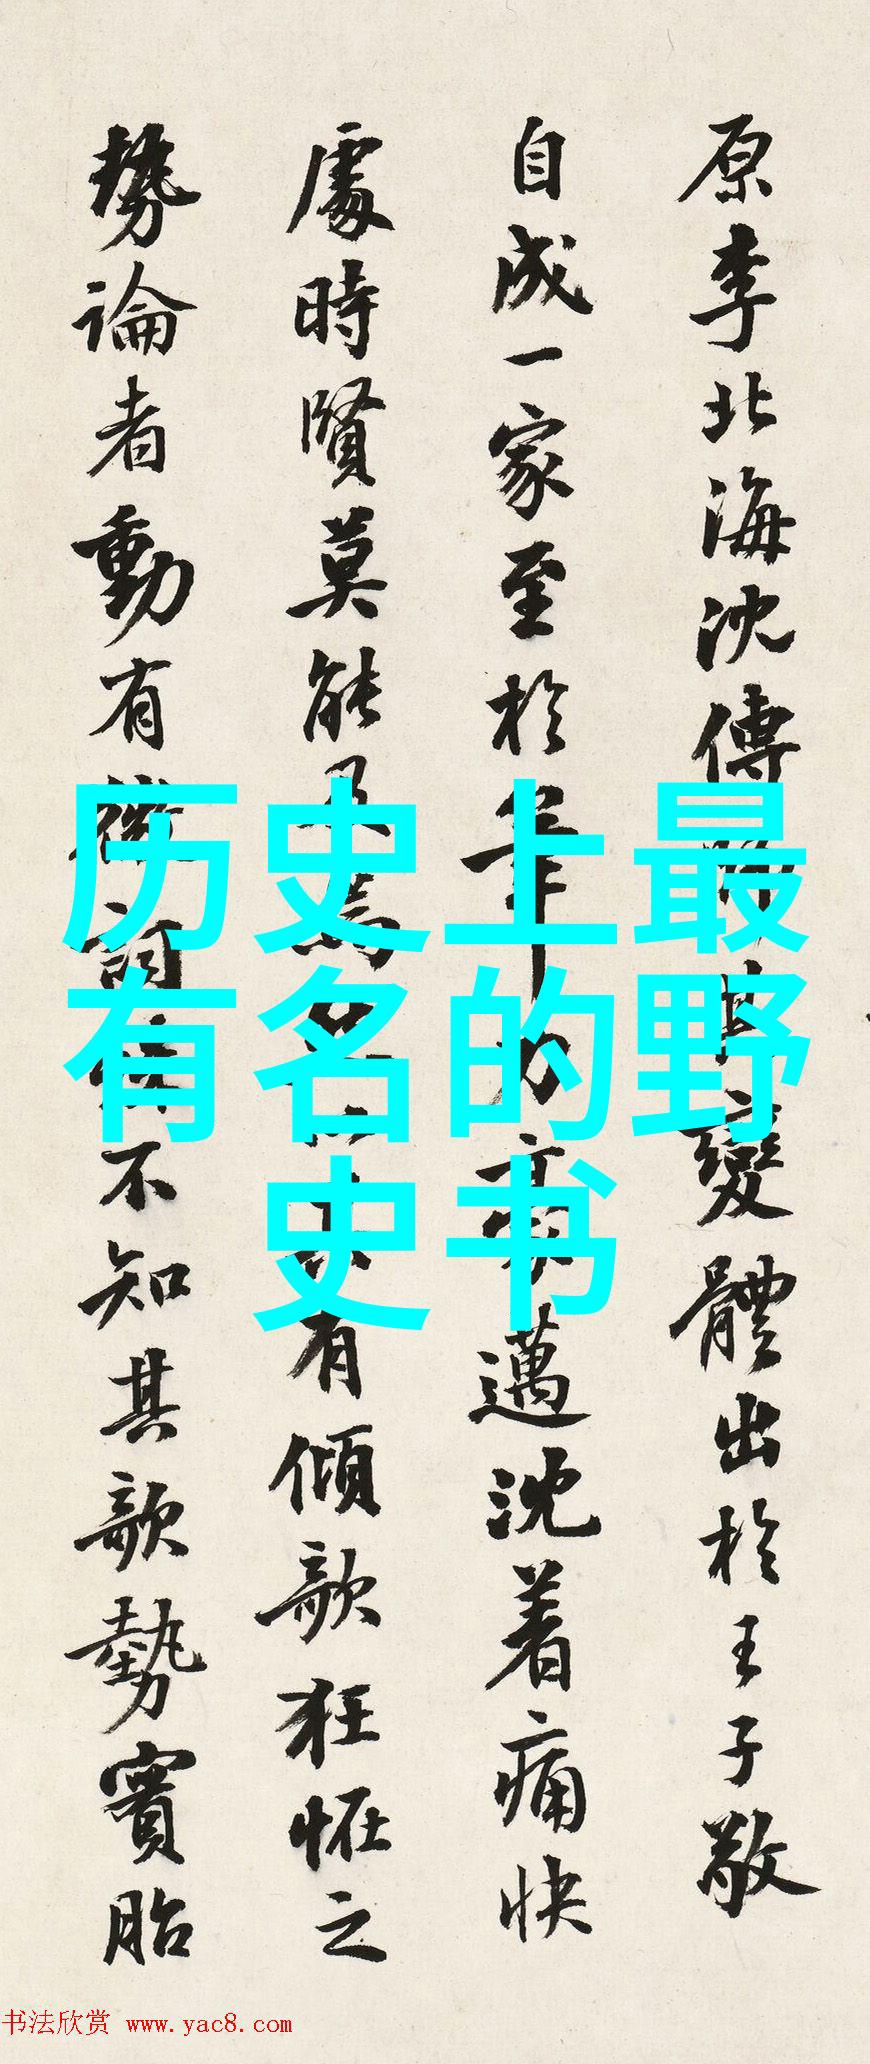 原李北海沈傳變體出於王子敬
自成一家至於筆力豪邁沈着痛快
處時賢莫能及有傾欹狂怪之
勢論者動有微詞不知其欹勢實胎
历史上最
有名的野
史书
书法欣赏 www.yac8.com